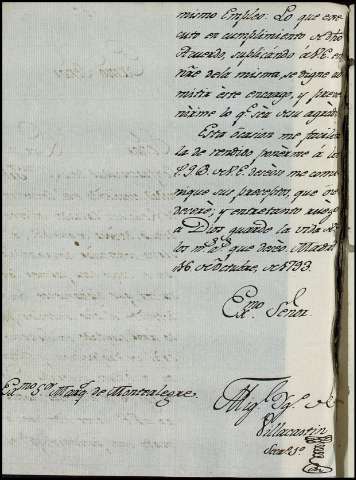 mismo Empleo: Lo que exe-
cuto en cumplimiento de dho
Acuerdo, suplicando á V.E. en
nre de la misma, se digne ad-
mitir este encargo, y preve-
nirme lo q.e sea de su agrado.
Esta ocasion me facili-
ta de rendido ponerme á los
P. de V.E. deseoso me comu-
nique sus preceptos, que ove-
deceré; y entretanto ruego
a Dios guarde la vida de V.E.
los m.s a.s que deseo. Madrid
16 de Octubre, de 1793.
Ex.mo Señor.
Ex.mo S.or Marq.s de Montealegre.
Mig.l de
Villacastin
Secret.o